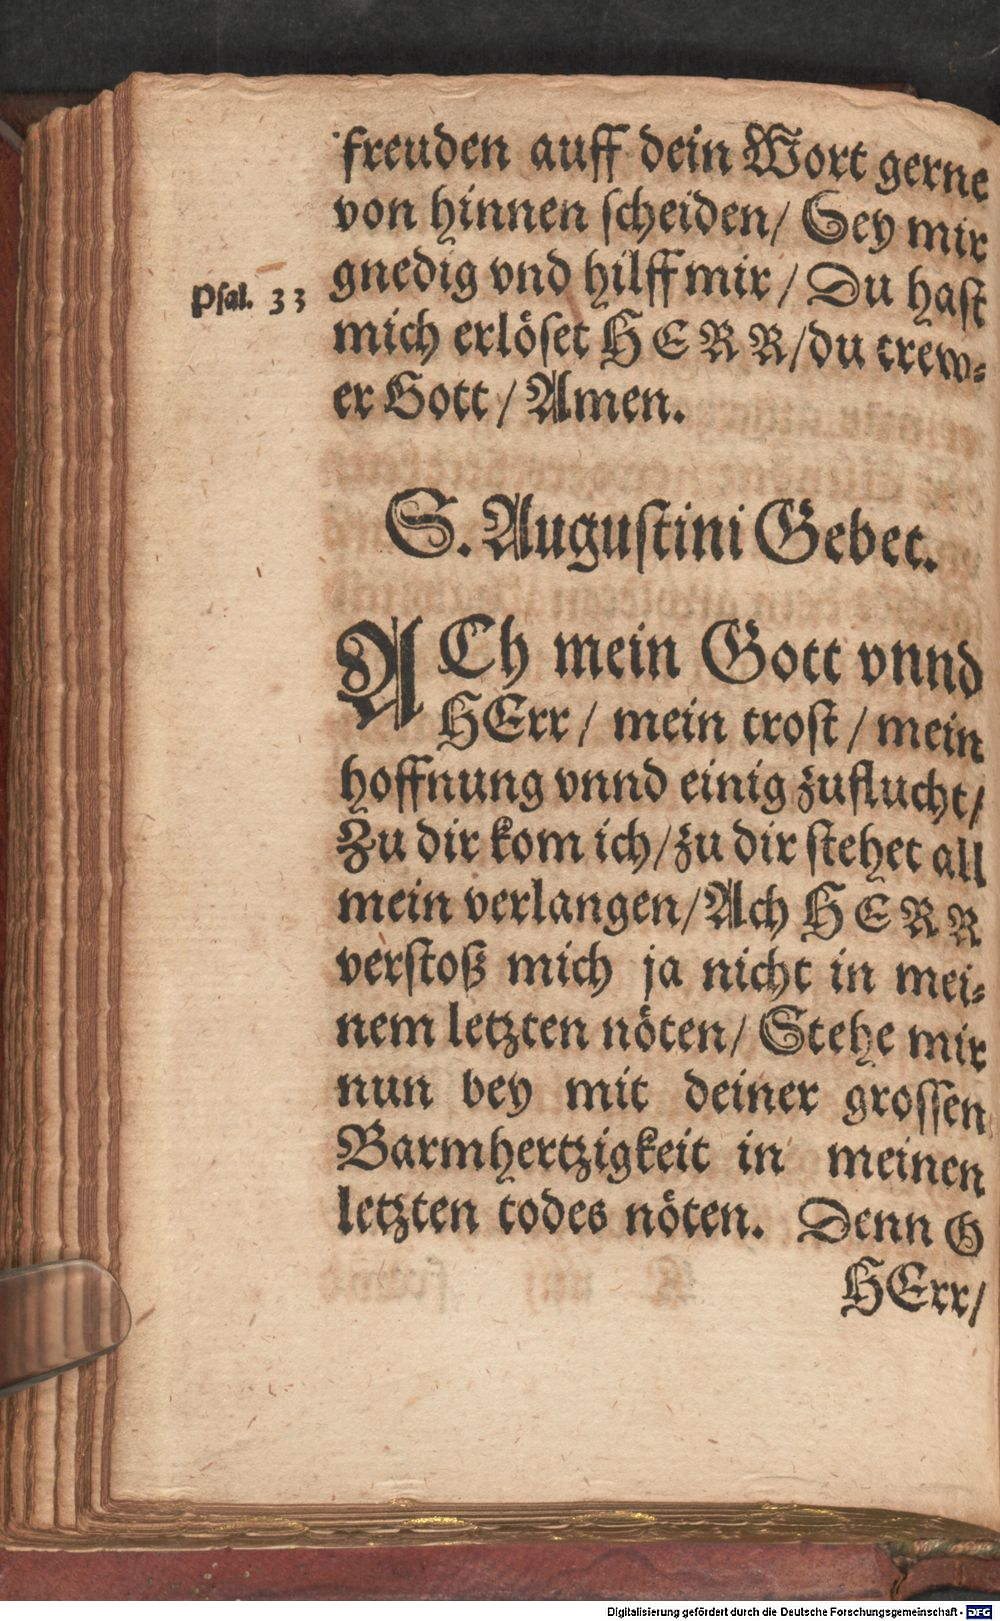 freuden auff dein Wort gerne
von hinnen scheiden/ Sey mir
gnedig vnd hilff mir/ Du hast
Psal. 33
mich erlöset HERR/du trew-
er Gott/ Amen.
S. Augustini Gebet.
ACh mein Gott vnnd
HErr/ mein trost/ mein
hoffnung vnnd einig zuflucht/
Zu dir kom ich/zu dir stehet all
mein verlangen/Ach HERR
verstoß mich ja nicht in mei-
nem letzten nöten/ Stehe mir
nun bey mit deiner grossen
Barmhertzigkeit in meinen
letzten todes nöten. Denn O
HErr/
Digitalisierung gefördert durch die Deutsche Forschungsgemeinschaft - DFG